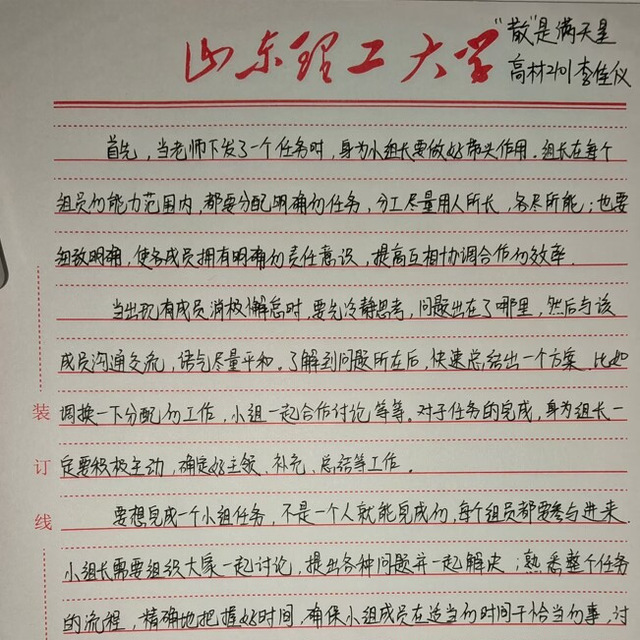 "散"是满天星
山东理工大学
高材2101 李佳仪
首先，当老师下发了一个任务时，身为小组长要做好带头作用。组长在每个
组员的能力范围内，都要分配明确的任务，分工尽量用人所长，各尽所能；也要
细致明确，使各成员拥有明确的责任意识，提高互相协调合作的效率。
当出现有成员消极懈怠时，要先冷静思考，问题出在了哪里，然后与该
成员沟通交流，语气尽量平和。了解到问题所在后，快速总结出一个方案，比如
装 调换一下分配的工作，小组一起合作讨论等等。对于任务的完成，身为组长一
订 定要积极主动，确定好主领、补充、总结等工作。
线 要想完成一个小组任务，不是一个人就能完成的，每个组员都要参与进来。
小组长需要组织大家一起讨论，提出各种问题并一起解决；熟悉整个任务
的流程，精确地把握好时间，确保小组成员在适当的时间干恰当的事，讨